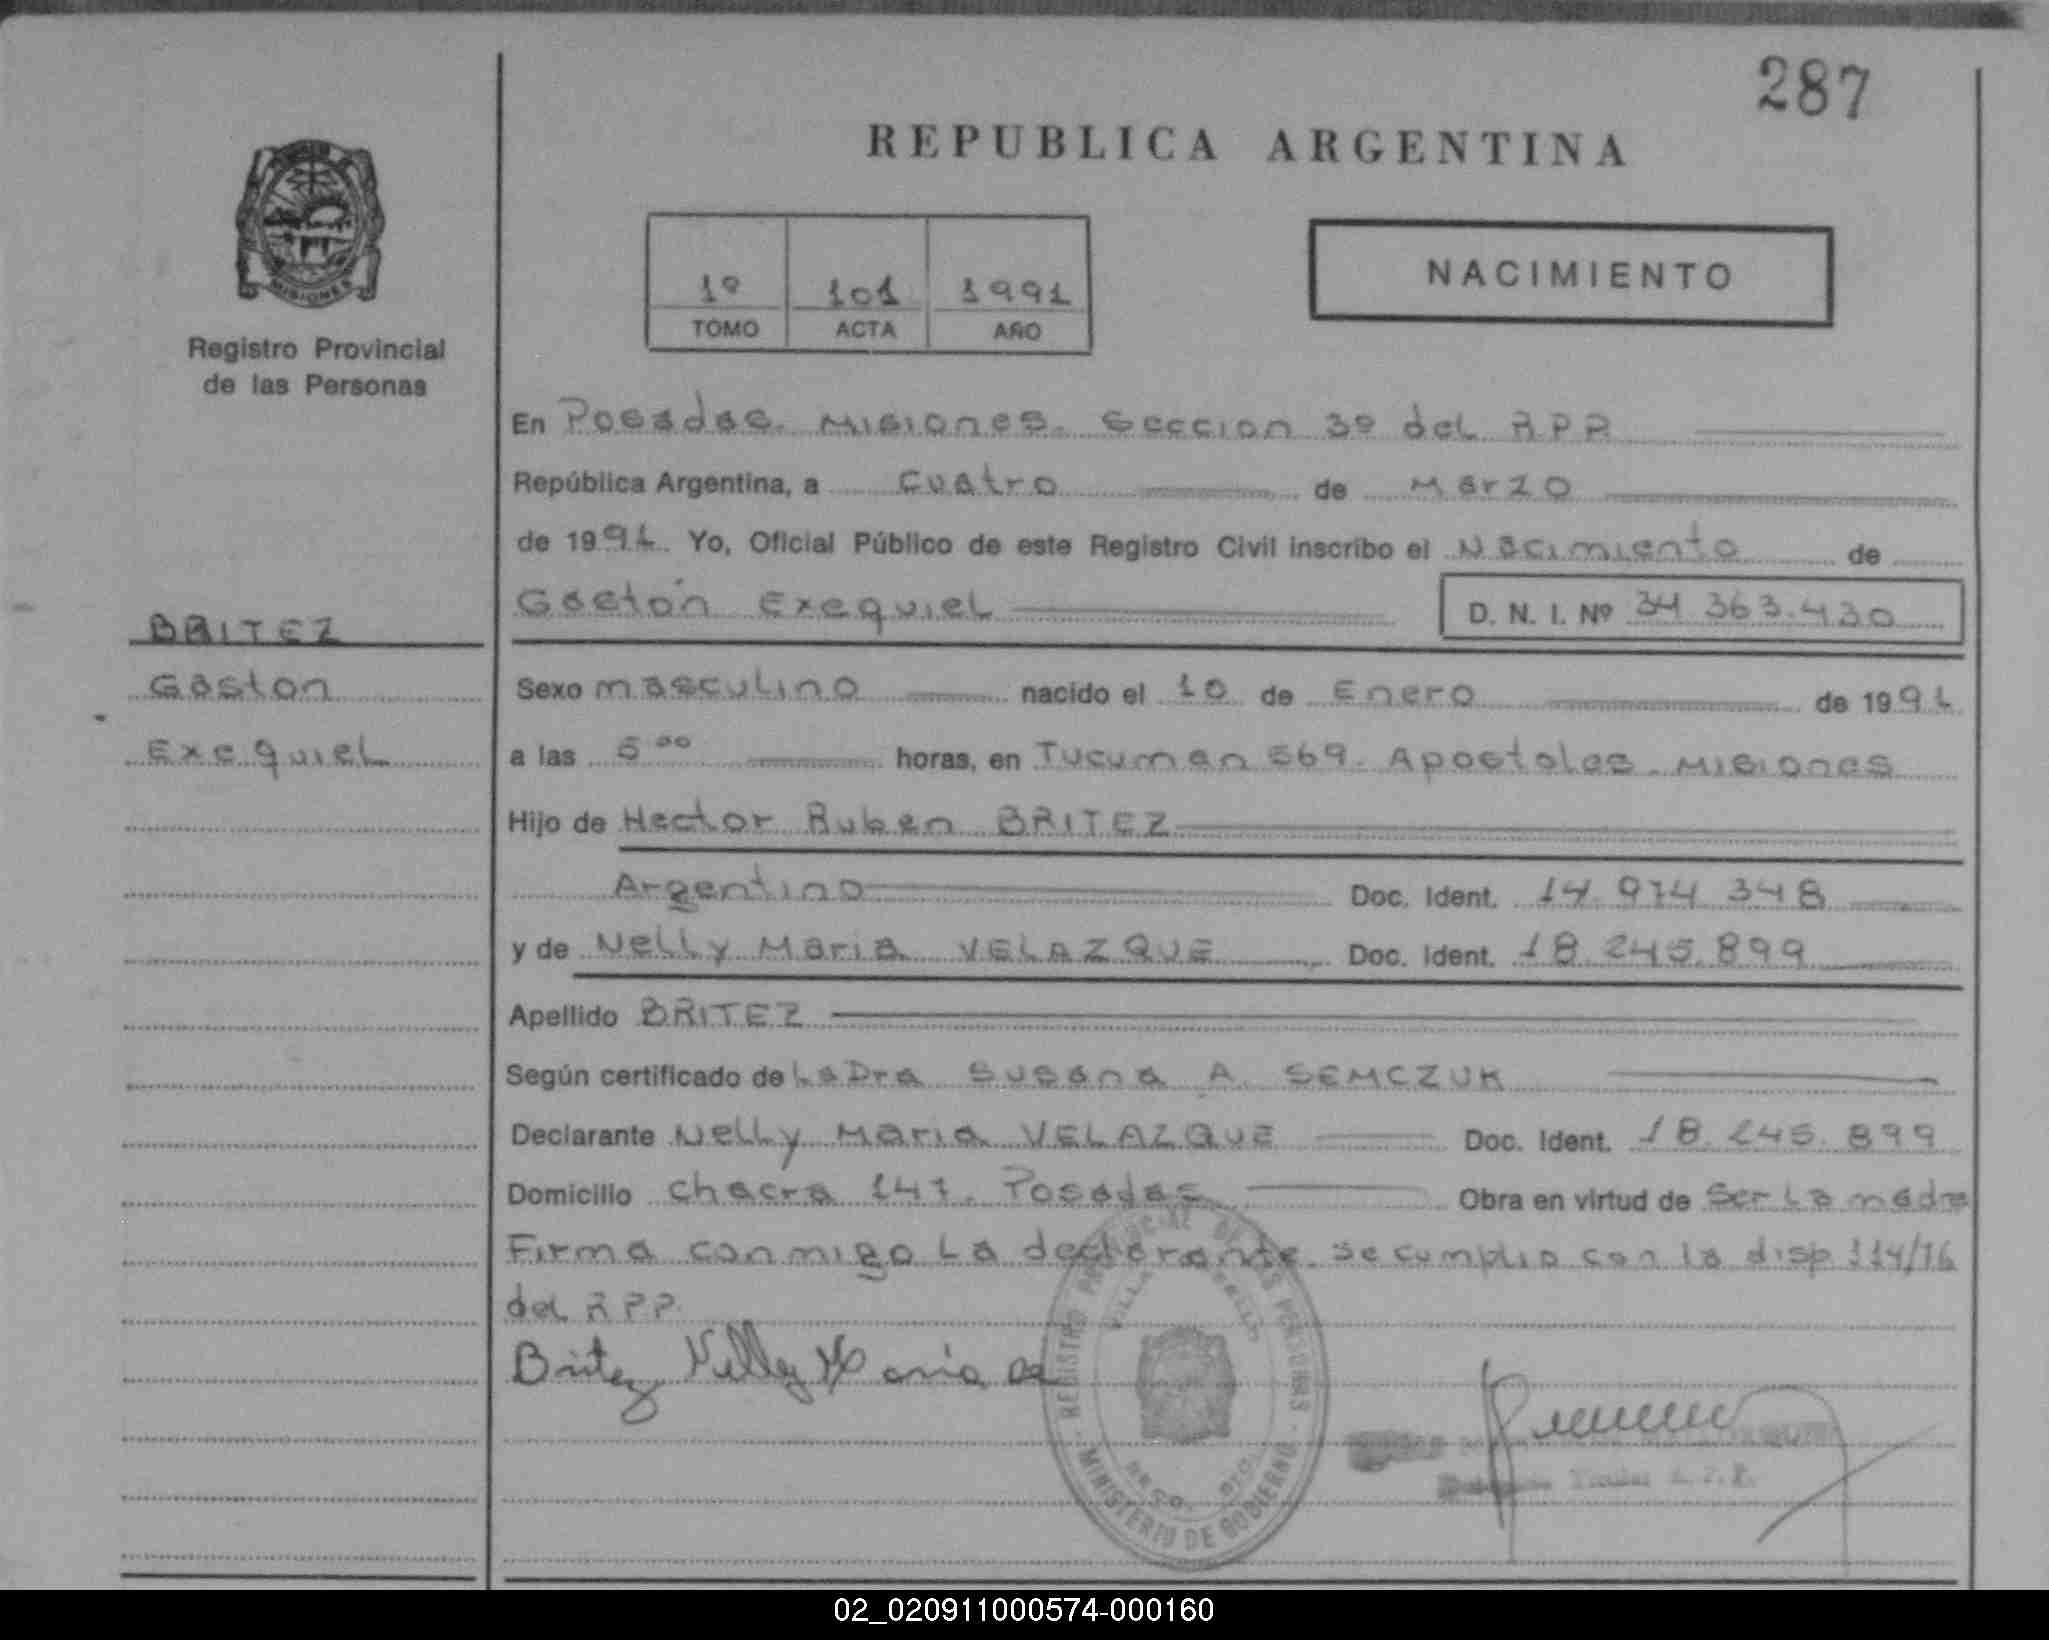 287
REPUBLICA ARGENTINA
MISIONES
1º 101 1991
TOMO ACTA AÑO
NACIMIENTO
Registro Provincial
de las Personas
En Posadas. Misiones. Seccion 3º del RPP
República Argentina, a cuatro de Marzo
de 1991. Yo, Oficial Público de este Registro Civil inscribo el Nacimiento de
Gastón Exequiel D. N. I. Nº 34.363.430
BRITEZ
Gaston
Exequiel
Sexo masculino nacido el 10 de Enero de 1991
a las 5 00 horas, en Tucuman 569. Apostoles. Misiones
Hijo de Hector Ruben BRITEZ
Argentino Doc. Ident. 14.974.348
y de Nelly Maria VELAZQUE Doc. Ident. 18.245.899
Apellido BRITEZ
Según certificado de La Dra Susana A. SEMCZUK
Declarante Nelly Maria VELAZQUE Doc. Ident. 18.245.899
Domicilio Chacra 147. Posadas Obra en virtud de Ser La madre
Firma conmigo La declarante. Se cumplio con la disp 114/76
del RPP.
Britez Nelly Maria de
REGISTRO PROVINCIAL DE LAS PERSONAS
MINISTERIO DE GOBIERNO
Titular R.P.P.
02_020911000574-000160